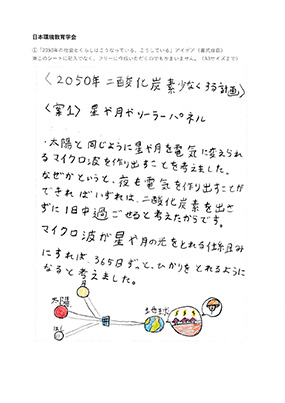 日本環境教育学会
①「2050年の社会とくらしはこうなっている、こうしている」アイデア（書式自由）
※このシートに記入でなく、フリーに作成いただくのでもかまいません。（A3サイズまで）
〈2050年二酸化炭素少なくする計画〉
〈案1〉星や月やソーラーパネル
・太陽と同じように星や月を電気に変えられ
るマイクロ波を作り出すことを考えました。
なぜかというと、夜も電気を作り出すことが
できればいずれは、二酸化炭素を出さ
ずに1日中過ごせると考えたからです。
マイクロ波が星や月の光をとれる仕組み
にすれば、365日ずっと、ひかりをとれるように
なると考えました。
太陽
ほし
地球